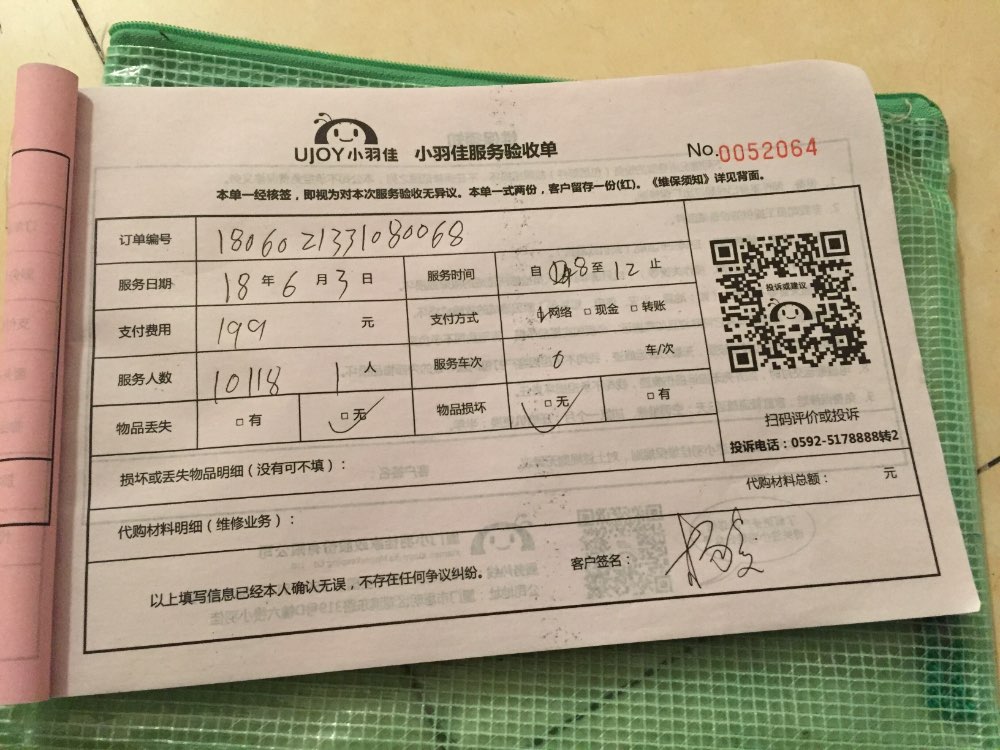 UJOY小羽佳 小羽佳服务验收单 No.0052064
本单一经核签，即视为对本次服务验收无异议。本单一式两份，客户留存一份(红)。《维保须知》详见背面。
订单编号 1806021331080068
服务日期 18 年 6 月 3 日 服务时间 自 8 至 12 止
支付费用 199 元 支付方式 网络 □现金 □转账
服务人数 10118 1 人 服务车次 0 车/次
物品丢失 □有 □无 物品损坏 □无 □有
投诉或建议
扫码评价或投诉
投诉电话：0592-5178888转2
损坏或丢失物品明细（没有可不填）：
代购材料总额： 元
代购材料明细（维修业务）：
客户签名：
以上填写信息已经本人确认无误，不存在任何争议纠纷。